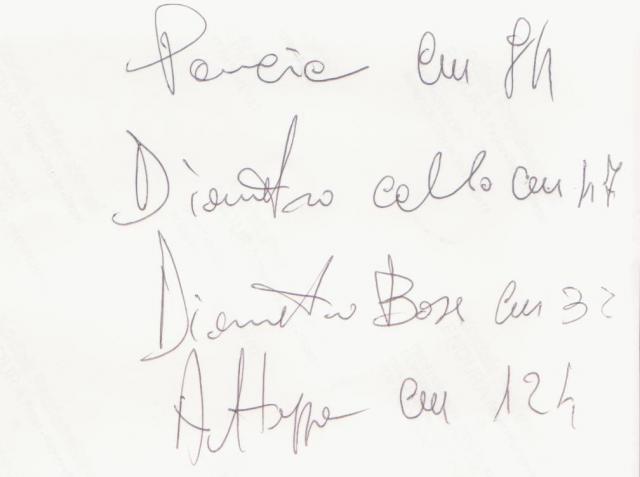 Pancia cm 84
Diametro collo cm 47
Diametro Base cm 32
Altezza cm 124